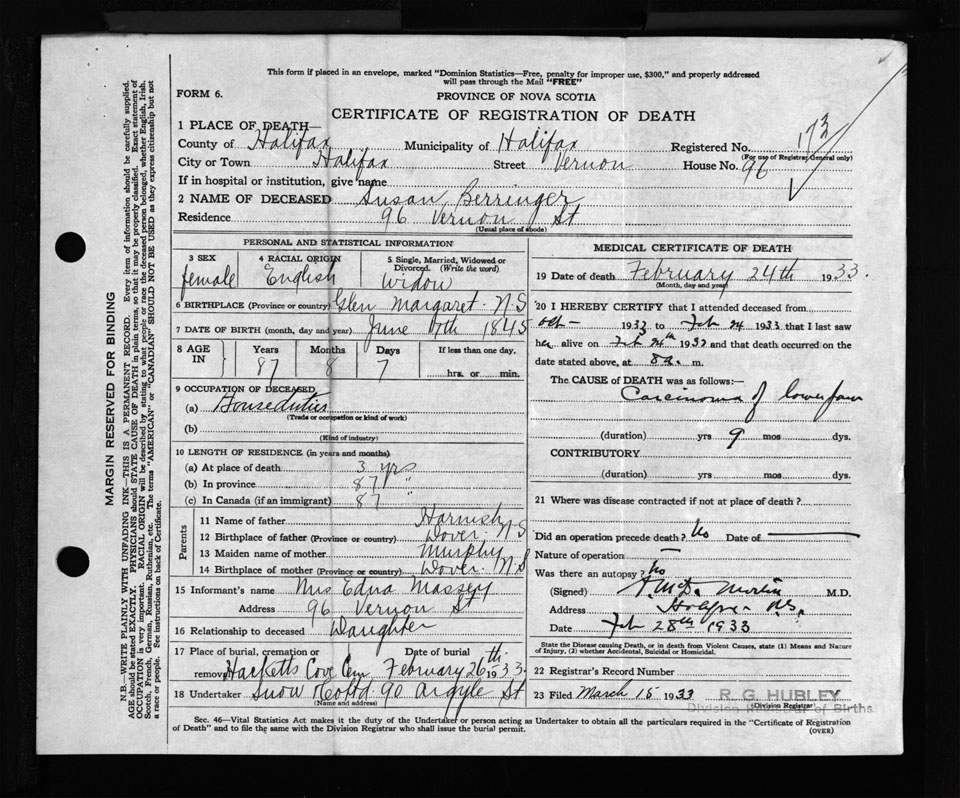 This form if placed in an envelope, marked "Dominion Statistics—Free, penalty for improper use, $300," and properly addressed
will pass through the Mail "FREE"
FORM 6.
PROVINCE OF NOVA SCOTIA
CERTIFICATE OF REGISTRATION OF DEATH
1 PLACE OF DEATH—
County of Halifax Municipality of Halifax Registered No. 173
(For use of Registrar General only)
City or Town Halifax Street Vernon House No. 96
If in hospital or institution, give name
2 NAME OF DECEASED Susan Berringer
Residence 96 Vernon St
(Usual place of abode)
PERSONAL AND STATISTICAL INFORMATION
3 SEX 4 RACIAL ORIGIN 5 Single, Married, Widowed or
Divorced. (Write the word)
female English Widow
6 BIRTHPLACE (Province or country) Glen Margaret. N.S
7 DATE OF BIRTH (month, day and year) June 17th 1845
8 AGE IN Years Months Days If less than one day,
87 8 7 hrs. or min.
9 OCCUPATION OF DECEASED
(a) Houseduties
(Trade or occupation or kind of work)
(b)
(Kind of industry)
10 LENGTH OF RESIDENCE (in years and months)
(a) At place of death 3 yrs
(b) In province 87 "
(c) In Canada (if an immigrant) 87
Parents
11 Name of father Harnish
12 Birthplace of father (Province or country) Dover N.S
13 Maiden name of mother Murphy
14 Birthplace of mother (Province or country) Dover. N.S
15 Informant's name Mrs Edna Massey
Address 96 Vernon St
16 Relationship to deceased Daughter
17 Place of burial, cremation or Date of burial
removal Hacketts Cove Cem February 26th 1933
18 Undertaker Snow & Co Ltd 90 Argyle St
(Name and address)
MEDICAL CERTIFICATE OF DEATH
19 Date of death February 24th 1933.
(Month, day and year)
20 I HEREBY CERTIFY that I attended deceased from
Oct— 1932 to Feb 24 1933 that I last saw
her alive on Feb 24th 1933 and that death occurred on the
date stated above, at 8 a. m.
The CAUSE of DEATH was as follows:—
Carcinoma of lower jaw
(duration) yrs 9 mos dys.
CONTRIBUTORY
(duration) yrs mos dys.
21 Where was disease contracted if not at place of death?
Did an operation precede death? No Date of
Nature of operation
Was there an autopsy? No
(Signed) Martin M.D.
Address Halifax N.S.
Date Feb 28th 1933
State the Disease causing Death, or in death from Violent Causes, state (1) Means and Nature
of Injury, (2) whether Accidental, Suicidal or Homicidal.
22 Registrar's Record Number
23 Filed March 15 1933 R. G. HUBLEY
(Division Registrar)
Division Registrar of Births
Sec. 46—Vital Statistics Act makes it the duty of the Undertaker or person acting as Undertaker to obtain all the particulars required in the "Certificate of Registration
of Death" and to file the same with the Division Registrar who shall issue the burial permit.
(OVER)
MARGIN RESERVED FOR BINDING
N.B.—WRITE PLAINLY WITH UNFADING INK—THIS IS A PERMANENT RECORD. Every item of information should be carefully supplied.
AGE should be stated EXACTLY. PHYSICIANS should STATE CAUSE OF DEATH in plain terms, so that it may be properly classified. Exact statement of
OCCUPATION is very important. RACIAL ORIGIN will be described by stating to what people or race the deceased person belonged, whether English, Irish,
Scotch, French, German, Russian, Ruthenian, etc. The terms "AMERICAN" or "CANADIAN" SHOULD NOT BE USED as they express citizenship but not
a race or people. See instructions on back of Certificate.